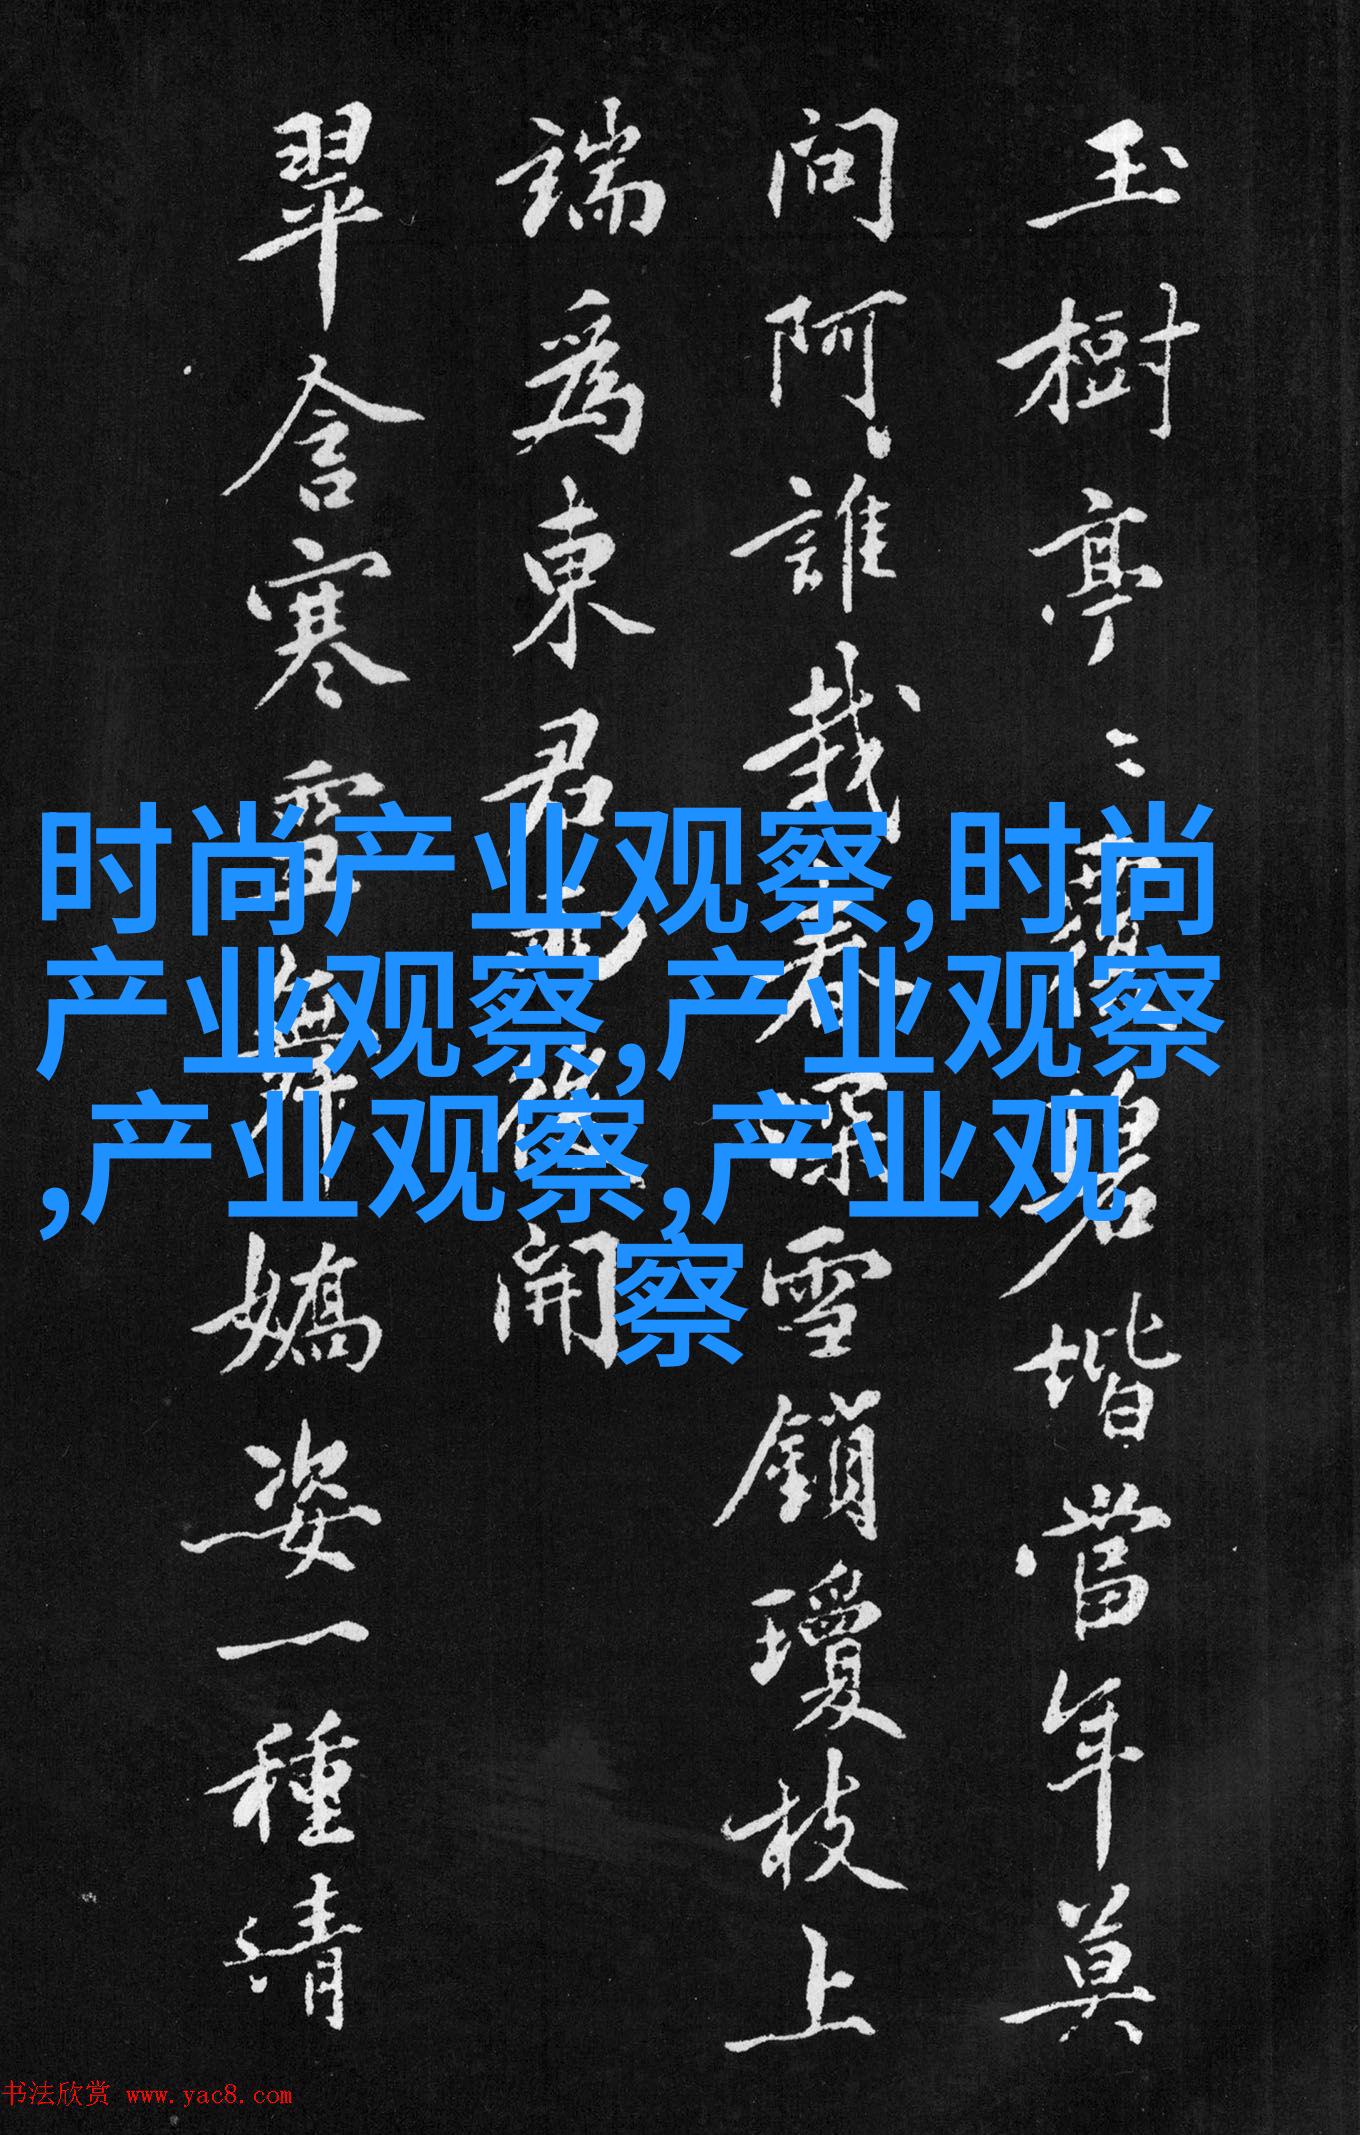 玉樹亭〻覆碧堦當年莫
問阿誰栽春深雪鎖瓊枝上
端爲東君後開
翠含寒舞嬌姿一種清
时尚产业观察,时尚
产业观察,产业观察
,产业观察,产业观
察
书法欣赏 www.yac8.com